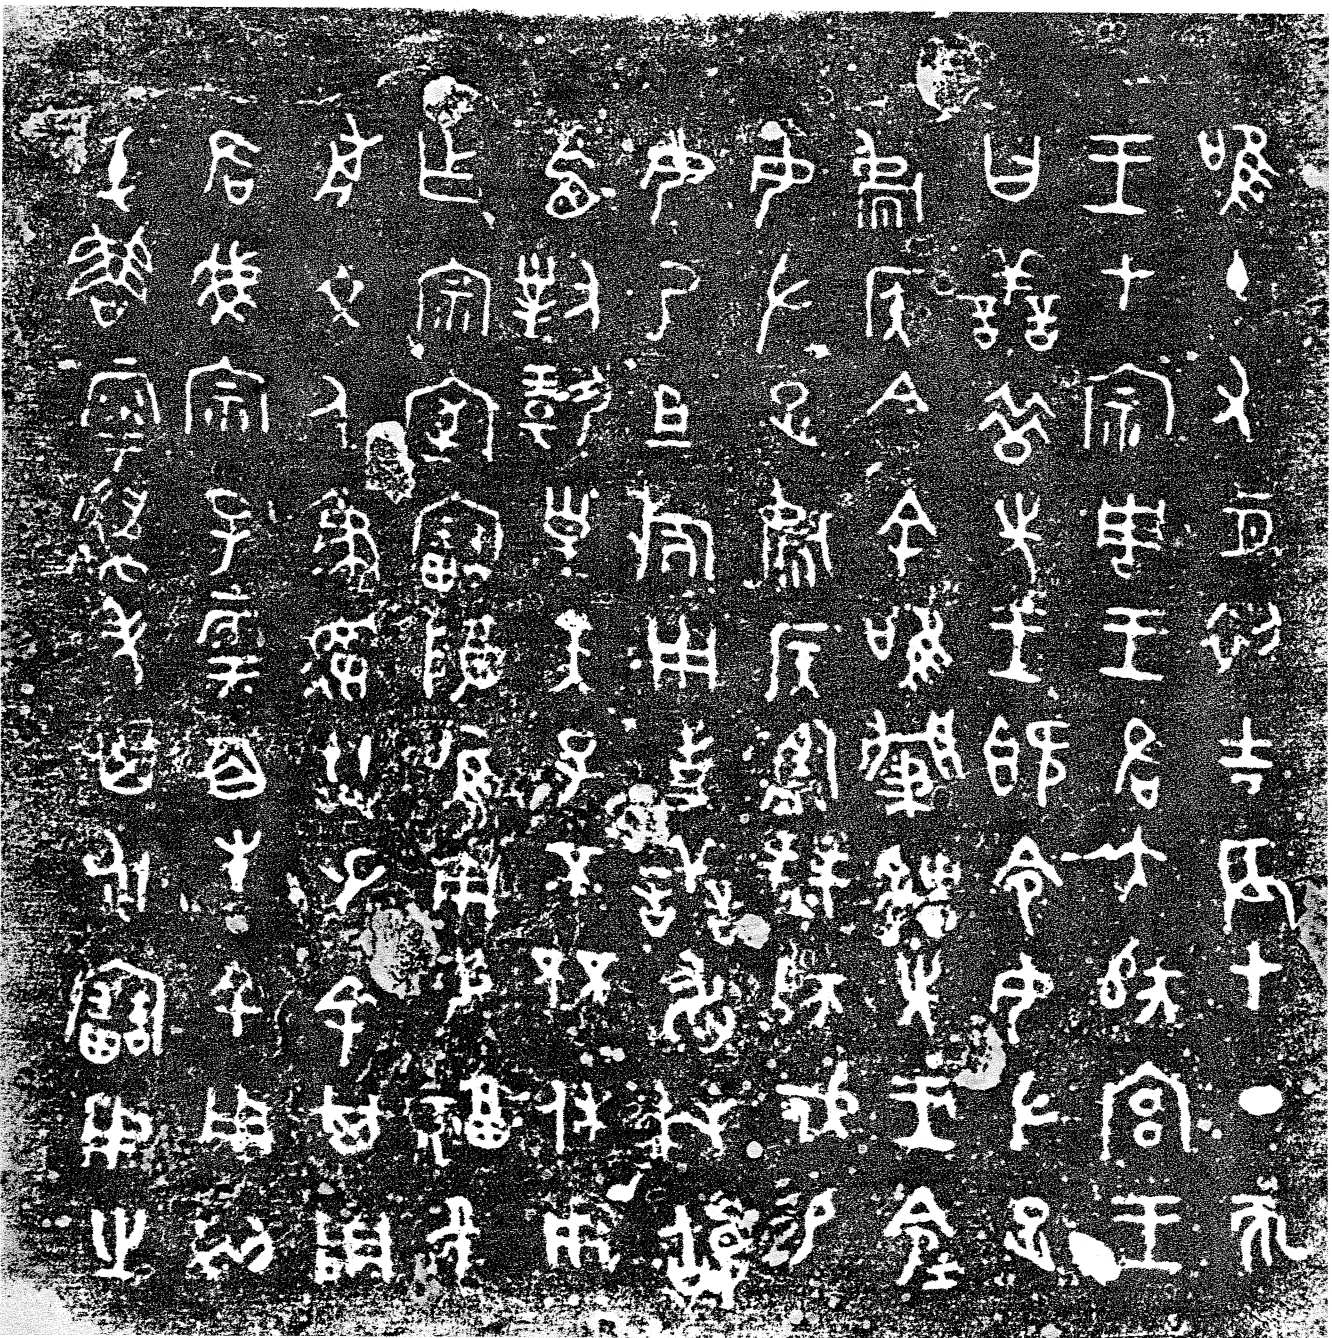 唯十又一月初吉辰才丁亥
王才宗周王各大師宮王
曰善昔先王既令女左疋
𩁹侯今余唯肇𤕌先王令令
女左疋𩁹侯監豳師戍易
女乃且旂用事善敢拜𩒨
首對揚皇天子不㔻休用
乍宗室寶尊唯用妥福
前文人秉德共屯余其用
各我宗子雩百生余用匄
屯魯雩萬年其永寶用之